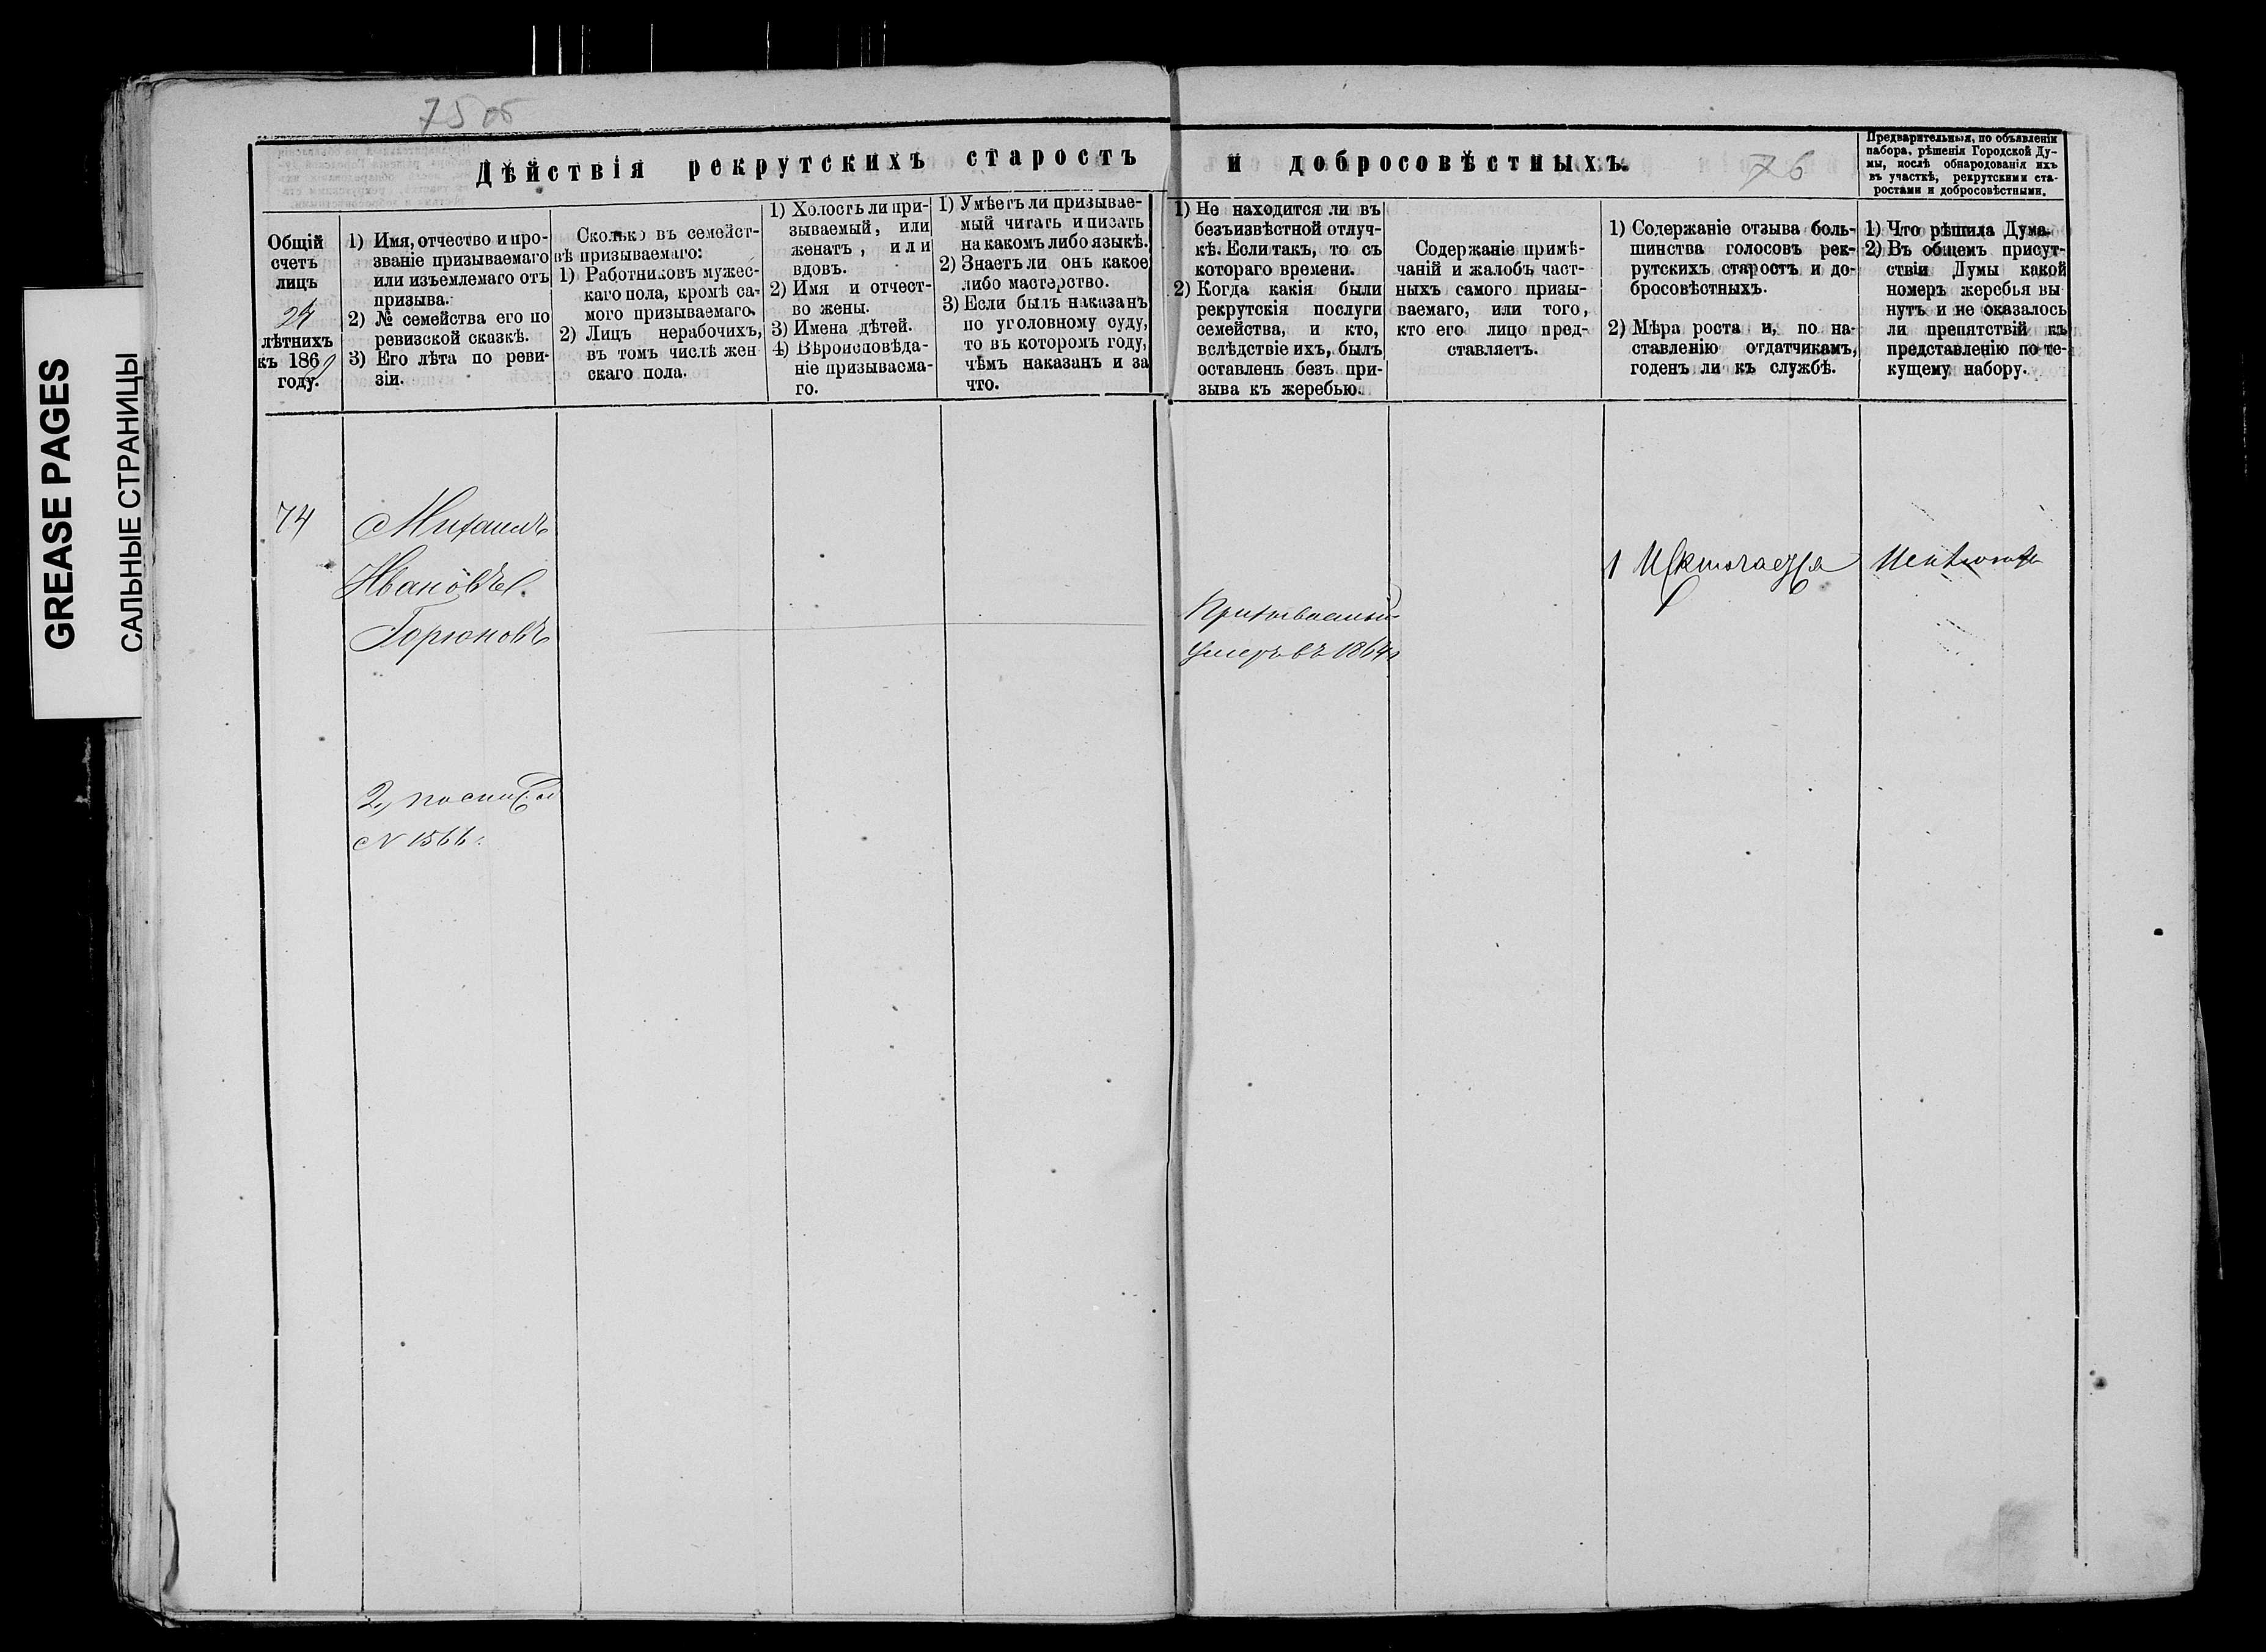 GREASE PAGES
САЛЬНЫЕ СТРАНИЦЫ
75 об
76
Дѣйствія рекрутскихъ старостъ и добросовѣстныхъ.
Предварительныя, по объявленіи
набора, рѣшенія Городской Ду-
мы, послѣ обнародованія ихъ
въ участкѣ, рекрутскими ста-
ростами и добросовѣстными.
Общій
счетъ
лицъ
24
лѣтнихъ
къ 186
году.
1) Имя, отчество и про-
званіе призываемаго
или изъемлемаго отъ
призыва.
2) № семейства его по
ревизской сказкѣ.
3) Его лѣта по реви-
зіи.
Сколько въ семейст-
вѣ призываемаго:
1) Работниковъ мужес-
каго пола, кромѣ са-
мого призываемаго.
2) Лицъ нерабочихъ,
въ томъ числѣ жен-
скаго пола.
1) Холостъ ли при-
зываемый, или
женатъ, или
вдовъ.
2) Имя и отчест-
во жены.
3) Имена дѣтей.
4) Вѣроисповѣда-
ніе призываема-
го.
1) Умѣетъ ли призывае-
мый читать и писать
на какомъ либо языкѣ.
2) Знаетъ ли онъ какое
либо мастерство.
3) Если былъ наказанъ
по уголовному суду,
то въ которомъ году,
чѣмъ наказанъ и за
что.
1) Не находится ли въ
безъизвѣстной отлуч-
кѣ. Если такъ, то съ
котораго времени.
2) Когда какія были
рекрутскія послуги
семейства, и кто,
вслѣдствіе ихъ, былъ
оставленъ безъ при-
зыва къ жеребью.
Содержаніе примѣ-
чаній и жалобъ част-
ныхъ самого призы-
ваемаго, или того,
кто его лицо пред-
ставляетъ.
1) Содержаніе отзыва боль-
шинства голосовъ рек-
рутскихъ старостъ и до-
бросовѣстныхъ.
2) Мѣра роста и, по на-
ставленію отдатчикамъ,
годенъ ли къ службѣ.
1) Что рѣшила Дума.
2) Въ общемъ присут-
ствіи Думы какой
номеръ жеребья вы-
нутъ и не оказалось
ли препятствій къ
представленію по те-
кущему набору.
74
Михаилъ
Ивановъ
Горюновъ
2) по
N 1566.
Призываемый
умеръ въ 1864 г
1 Исключается
Исключить